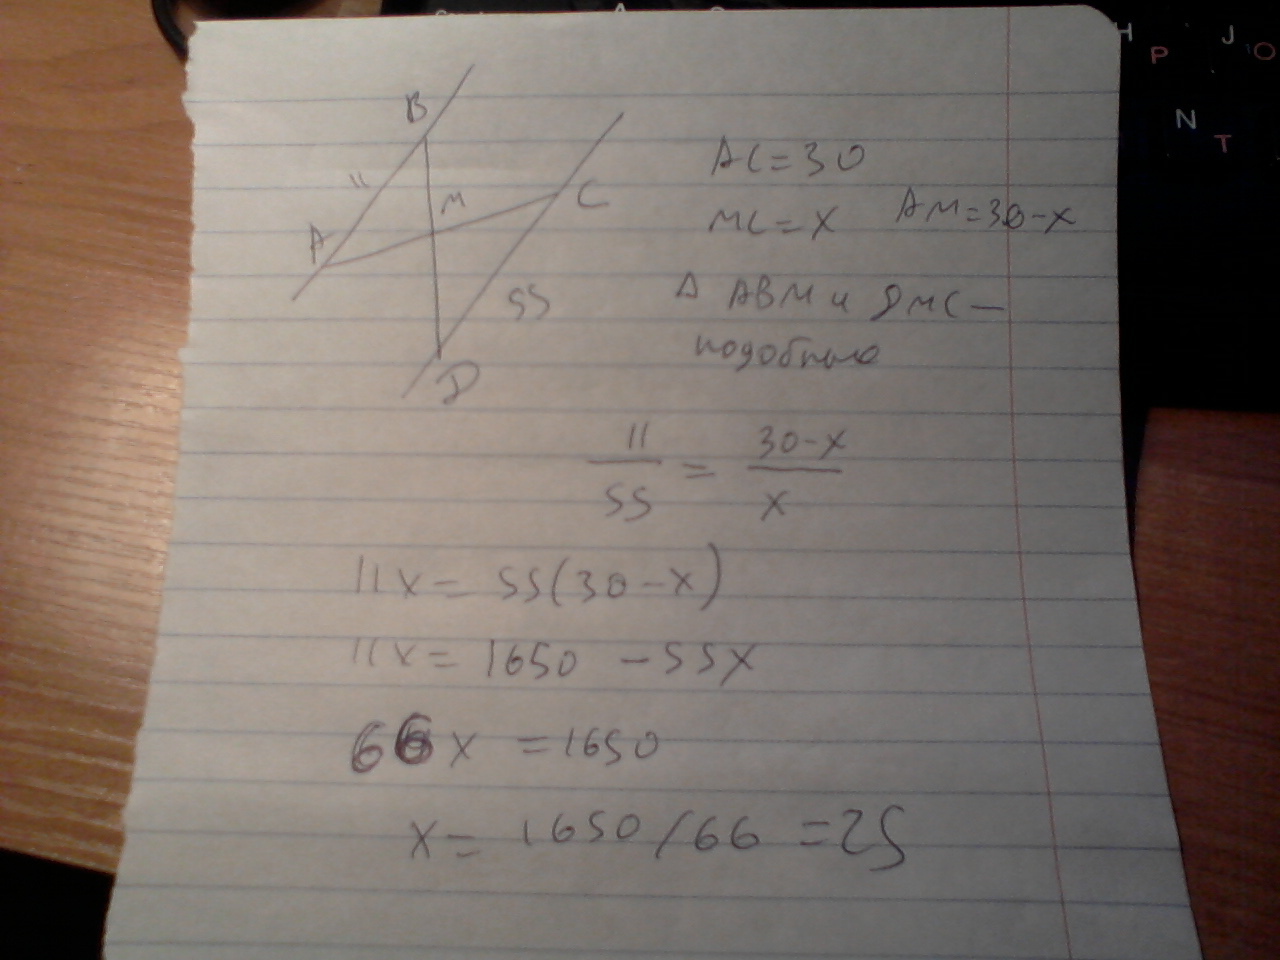 B
11
M
A
C
55
D
AC=30
MC=x AM=30-x
Δ ABM и DMC —
подобные
11/55 = 30-x/x
11x= 55(30-x)
11x= 1650 -55x
66x =1650
x= 1650/66 =25
H
J
P
O
N
T